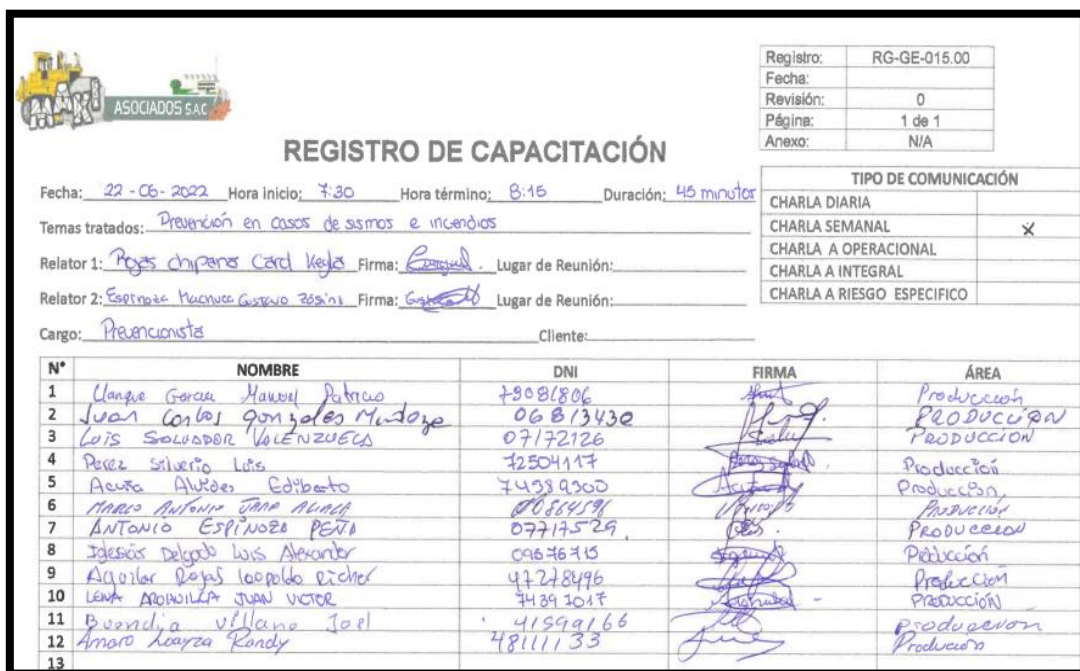 MAKI ASOCIADOS S.A.C
Registro: RG-GE-015.00
Fecha:
Revisión: 0
Página: 1 de 1
Anexo: N/A
REGISTRO DE CAPACITACIÓN
Fecha: 22-06-2022 Hora inicio: 7:30 Hora término: 8:15 Duración: 45 minutos
Temas tratados: Prevención en casos de sismos e incendios
Relator 1: Rojas chipana Carol Keyla Firma: Lugar de Reunión:
Relator 2: Espinoza Machuca Gustavo Zósimo Firma: Lugar de Reunión:
Cargo: Prevencionista Cliente:
TIPO DE COMUNICACIÓN
CHARLA DIARIA
CHARLA SEMANAL x
CHARLA A OPERACIONAL
CHARLA A INTEGRAL
CHARLA A RIESGO ESPECIFICO
N° NOMBRE DNI FIRMA ÁREA
1 Llanque Garcia Manuel Patricio Producción
2 Juan Carlos gonzales Mendoza 06813430 PRODUCCIÓN
3 LUIS SALVADOR VALENZUELA 07172126 PRODUCCION
4 Perez Silverio Luis 72504117 Producción
5 Acuña Alvides Edilberto 74389300 Producción
6 MARCO ANTONIO Producción
7 ANTONIO ESPINOZA PEÑA 07717529 PRODUCCION
8 Iglesias Delgado Luis Alexander 09676715 Producción
9 Aguilar Rojas leopoldo Richer 47278496 Producción
10 JUAN VICTOR 74397047 PRODUCCIÓN
11 Buendia Villano Joel 41599166 Produccion
12 Amaro Loayza Randy 48111133 Produccion
13